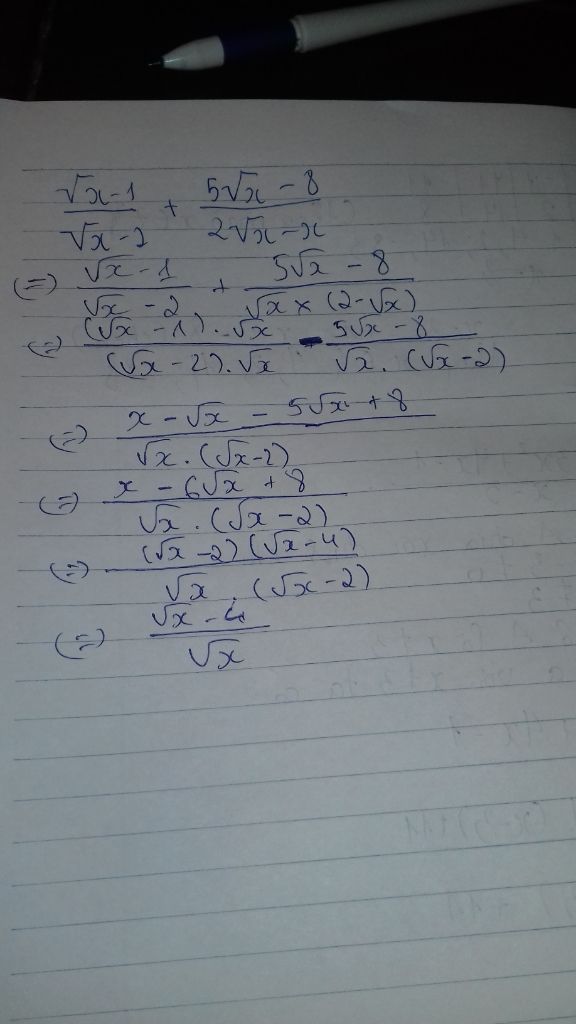 (√x-1)/(√x-2) + (5√x-8)/(2√x-x)
(=) (√x-1)/(√x-2) + (5√x-8)/(√x×(2-√x))
(=) ((√x-1).√x)/((√x-2).√x) - (5√x-8)/(√x.(√x-2))
(=) (x-√x-5√x+8)/(√x.(√x-2))
(=) (x-6√x+8)/(√x.(√x-2))
(=) ((√x-2)(√x-4))/(√x.(√x-2))
(=) (√x-4)/√x